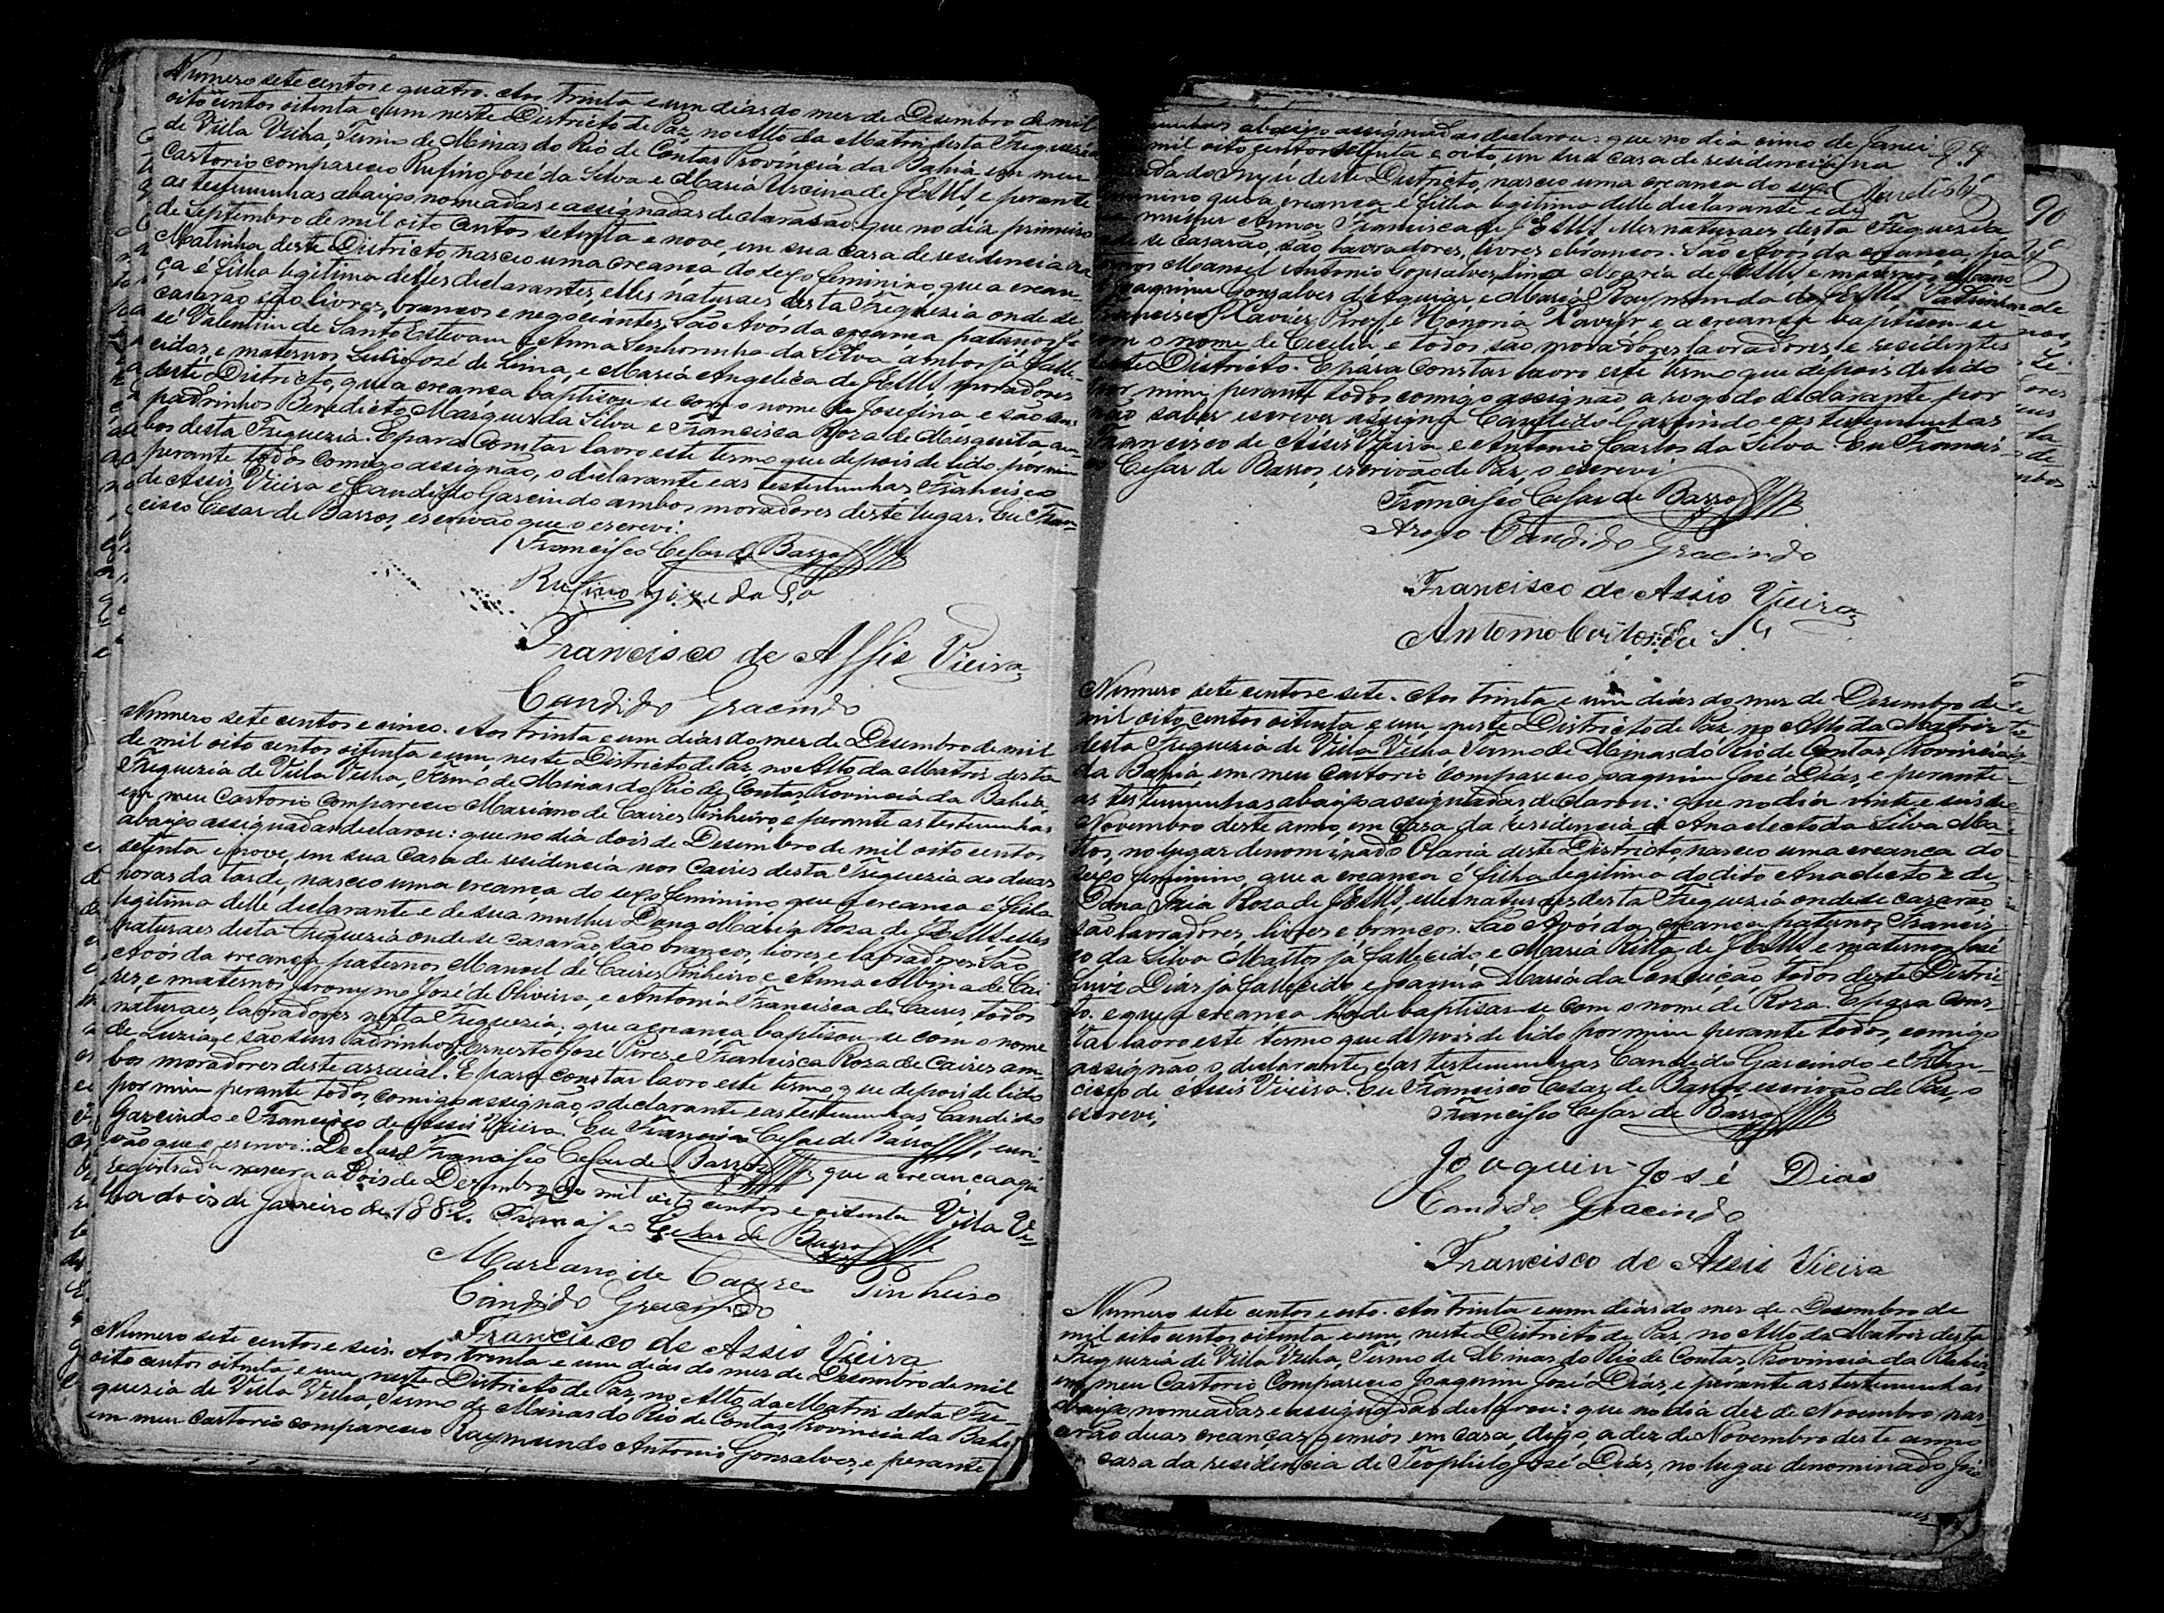 Numero sete centos e quatro. Aos trinta e um dias do mez de Desembro de mil
oito centos oitenta e um neste Districto de Paz, no Alto da Matriz desta Freguezia
de Villa Velha, Termo de Minas do Rio de Contas Provincia da Bahia em meu
Cartorio compareceo Rufino José da Silva e Maria Urcina de JESUS, e perante
as testemunhas abaixo nomeadas e assignadas declararão: que no dia primeiro
de Septembro de mil oito centos setenta e nove, em sua casa de residencia na
Matinha deste Districto, nasceo uma creança do sexo feminino, que a crean-
ça é filha legitima delles declarantes, elles naturaes desta Freguezia onde se
casarão são livres, brancos e negociantes, São Avós da creança paternos Jo-
sé Valentim de Santo Estevam e Anna Senhorinha da Silva ambos já falle-
cidos, e maternos Luis José de Lima, e Maria Angelica de JESUS, moradores
deste Districto, que a creança baptisou-se com o nome de Josefina, e são seus
padrinhos Benedicto Marques da Silva e Francisca Roza de Misquita, am-
bos desta Freguezia. E para constar lavro este termo que depois de lido por mim
perante todos comigo assignão, o declarante e as testemunhas Francisco
de Assis Vieira e Candido Garcindo ambos moradores deste lugar. Eu Fran-
cisco Cesar de Barros, escrivão que o escrevi.
Francisco Cesar de Barros
Rufino José da Sa
Francisco de Assis Vieira
Candido Gracindo
Numero sete centos e cinco. Aos trinta e um dias do mez de Desembro de mil
de mil oito centos oitenta e um neste Districto de Paz no Alto da Matriz desta
Freguezia de Villa Velha, Termo de Minas do Rio de Contas, Provincia da Bahia
em meu Cartorio compareceo Mariano de Caires Pinheiro, e perante as testemunhas
abaixo assignadas declarou: que no dia dois de Desembro de mil oito centos
setenta e nove, em sua casa de residencia nos Caires desta Freguezia as duas
horas da tarde, nasceo uma creança do sexo feminino, que a creança é filha
legitima delle declarante e de sua mulher Dona Maria Rosa de JESUS elles
naturaes desta Freguezia onde se casarão, são brancos, livres e lavradores. São
Avós da creança paternos Manoel de Caires Pinheiro e Anna Albina de Cai
res, e maternos Jeronymo José de Oliveira, e Antonia Francisca de Caires, todos
naturaes, lavradores nesta Freguezia. que a creança baptisou-se com o nome
de Luzia, e são seus Padrinhos Ernesto José Pires e Francisca Roza de Caires am-
bos moradores deste arraial. E para constar lavro este termo que depois de lido
por mim perante todos, comigo assignão, o declarante e as testemunhas, Candido
Garcindo e Francisco de Assis Vieira. Eu Francisco Cesar de Barros, escri-
vão que o escrevi. Declaro Francisco Cesar de Barros que a creança aqui
registrada nascera a dois de Dezembro de mil oito centos e oitenta Villa Ve-
lha dois de Janeiro de 1882. Francisco Cesar de Barros
Mariano de Caires Pinheiro
Candido Gracindo
Francisco de Assis Vieira
Numero sete centos e seis. Aos trinta e um dias do mez de Desembro de mil
oito centos oitenta e um, neste Districto de Paz, no Alto da Matriz desta Fre-
guezia de Villa Velha, Termo de Minas do Rio de Contas, Provincia da Bahia
em meu Cartorio compareceo Raymundo Antonio Gonsalves, e perante
abaixo assignadas declarou: que no dia cinco de Janei
89
mil oito centos setenta e oito, em sua casa de residencia na
do deste Districto, nasceo uma creança do sexo
que a creança é filha legitima delle declarante e de
mulher Anna Francisca de JESUS elles naturaes desta Freguezia
se casarão, são lavradores, livres e brancos. São Avós da creança pa
Manoel Antonio Gonsalves, e de JESUS, e maternos
Joaquim Gonsalves d'Aguiar e Maria Raymunda de JESUS. Padrinhos
Francisco Xavier Pires, e Honoria Xavier e a creança baptisou-se
com o nome de Cecilia e todos são moradores lavradores, e residentes
deste Districto. E para constar lavro este termo que depois de lido
por mim perante todos comigo assignão, a rogo do declarante por
não saber escrever assigna Candido Garcindo e as testemunhas
Francisco de Assis Vieira e Antonio Carlos da Silva. Eu Francis
co Cesar de Barros, escrivão de Paz, o escrevi
Francisco Cesar de Barros
Arogo Candido Gracindo
Francisco de Assis Vieira
Antonio Carlos da Sa
Numero sete centos e sete. Aos trinta e um dias do mez de Desembro de
mil oito centos oitenta e um, neste Districto de Paz, no Alto da Matriz
desta Freguezia de Villa Velha, Termo de Minas do Rio de Contas, Provincia
da Bahia, em meu Cartorio compareceo Joaquim José Dias, e perante
as testemunhas abaixo assignadas declarou: que no dia vinte e seis de
Novembro deste anno, em casa da residencia de Anacleto da Silva Ma-
ttos, no lugar denominado Olaria deste Districto, nasceo uma creança do
sexo feminino, que a creança é filha legitima do dito Anacleto e de
Dona Roza de JESUS, elles naturaes desta Freguezia onde se casarão,
são lavradores, livres e brancos. São Avós da creança paternos Francis-
co da Silva Mattos já fallecido e Maria Ritta de JESUS e maternos José
Luiz Dias já fallecido e Joanna Maria da Conceição todos deste Distric-
to. e que a creança há de baptisar-se com o nome de Roza. E para cons-
tar lavro este termo que depois de lido por mim perante todos, comigo
assignão o declarante, e as testemunhas Candido Garcindo e Fran-
cisco de Assis Vieira. Eu Francisco Cesar de Barros, escrivão de Paz, o
escrevi,
Francisco Cesar de Barros
Joaquim José Dias
Candido Gracindo
Francisco de Assis Vieira
Numero sete centos e oito. Aos trinta e um dias do mez de Desembro de
mil oito centos oitenta e um, neste Districto de Paz, no Alto da Matriz desta
Freguezia de Villa Velha, Termo de Minas do Rio de Contas Provincia da Bahia,
em meu Cartorio compareceo Joaquim José Dias, e perante as testemunhas
abaixo nomeadas e assignadas declarou: que no dia dez de Novembro nas-
cerão duas creanças gemios em casa, digo, a dez de Novembro deste anno
casa da residencia de Teophilo José Dias, no lugar denominado
90